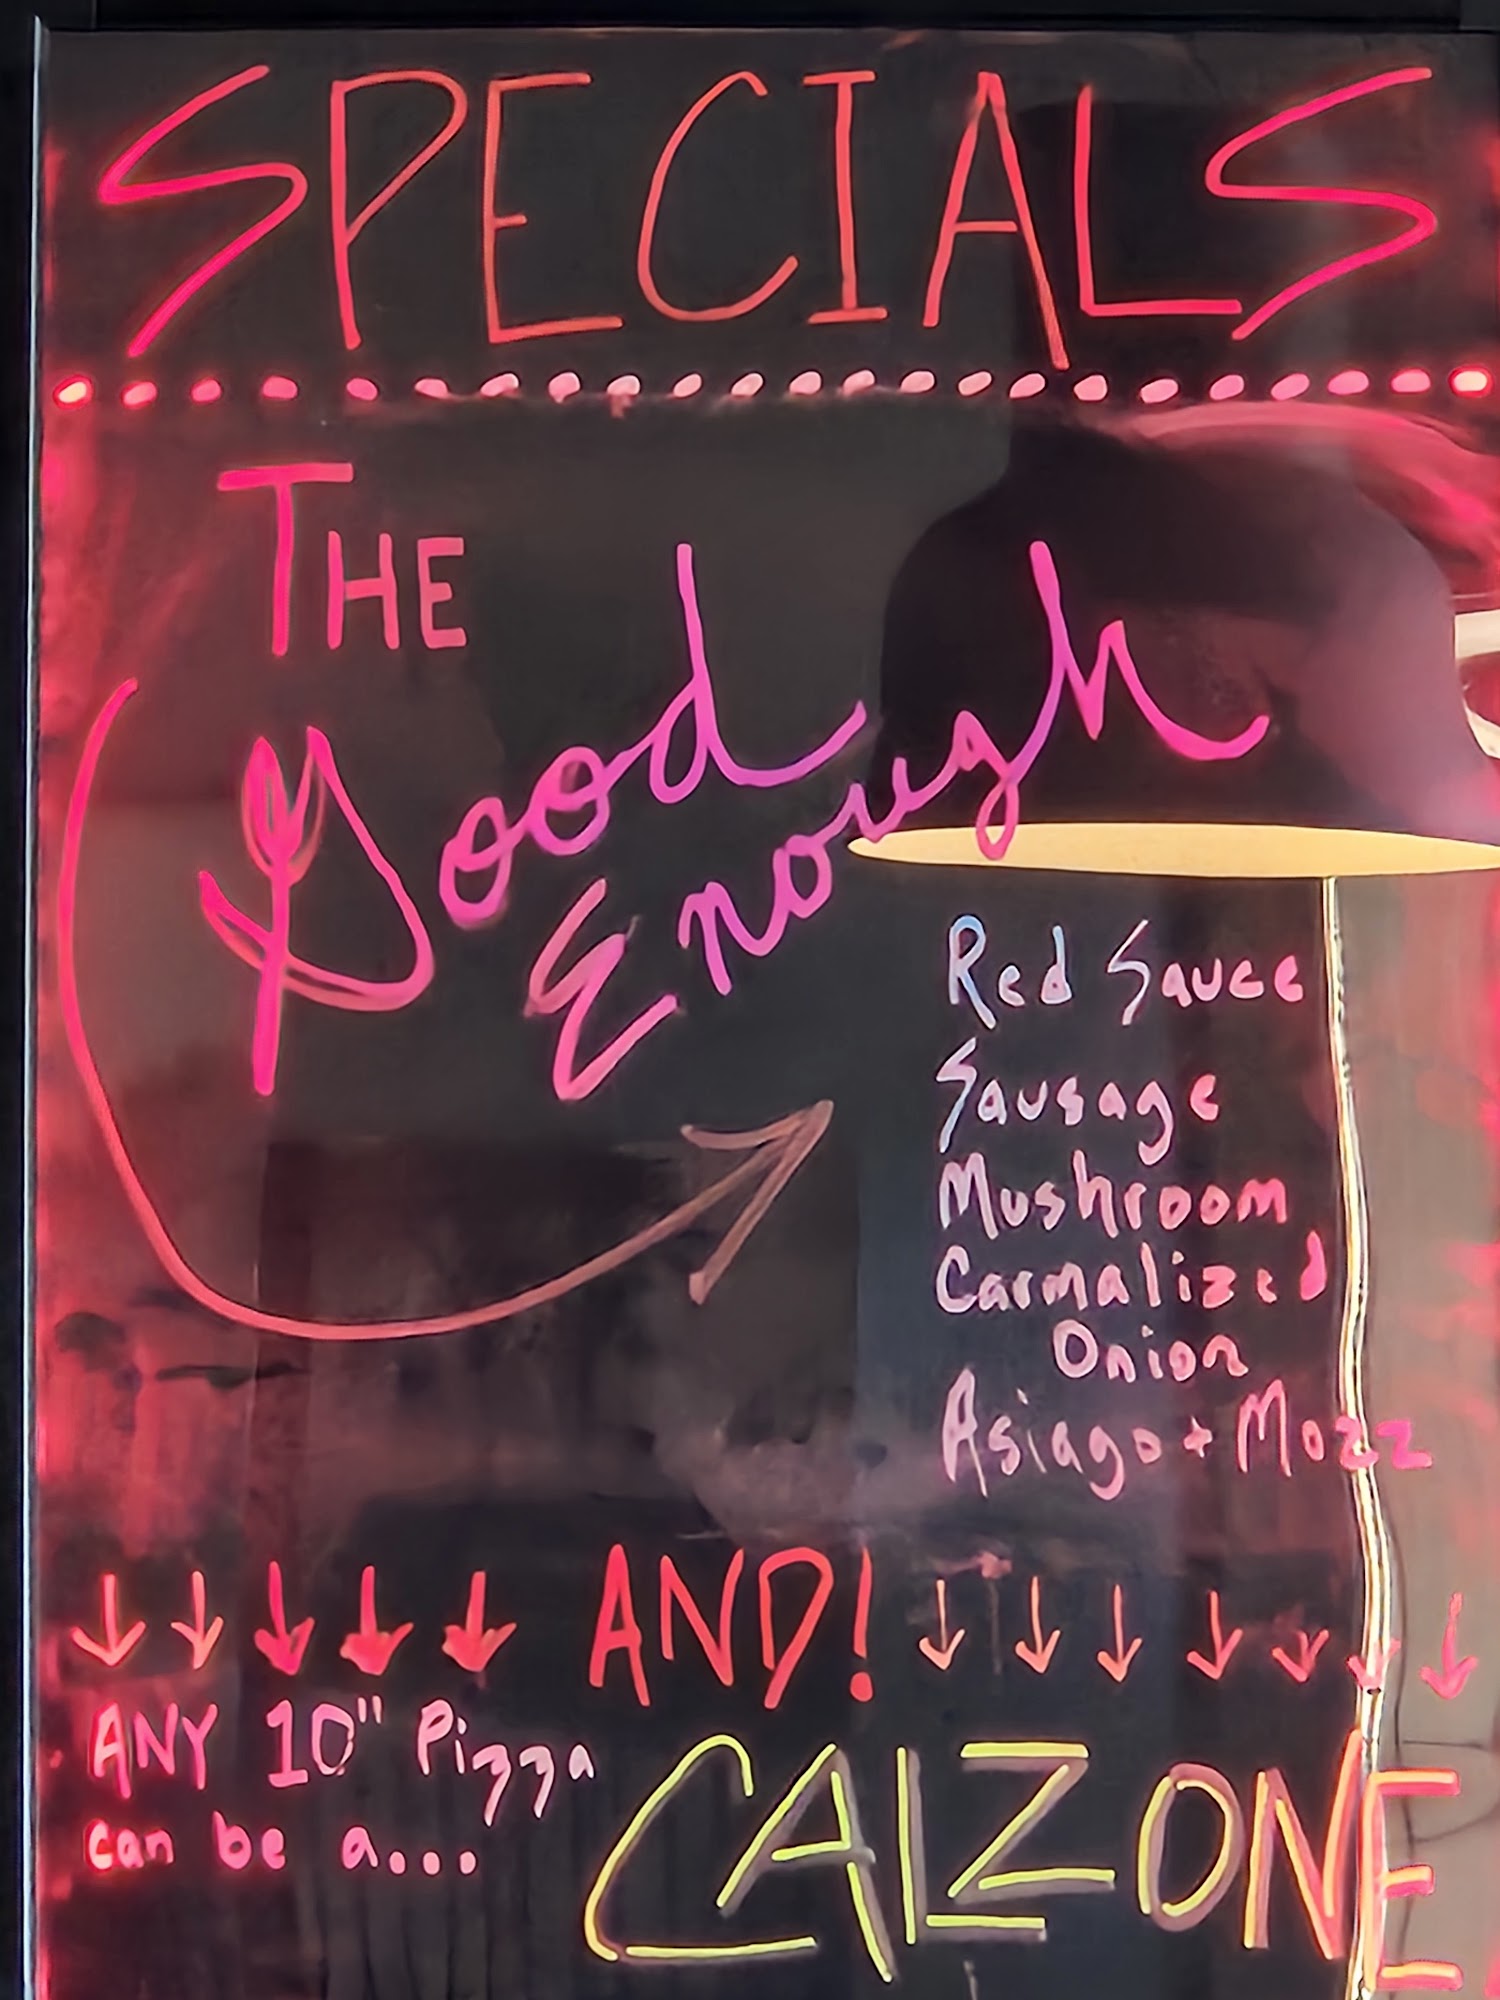 SPECIALS
THE
Good
Enough
Red Sauce
Sausage
Mushroom
Carmalized
Onion
Asiago + Mozz
AND!
ANY 10" Pizza
can be a...
CALZONE